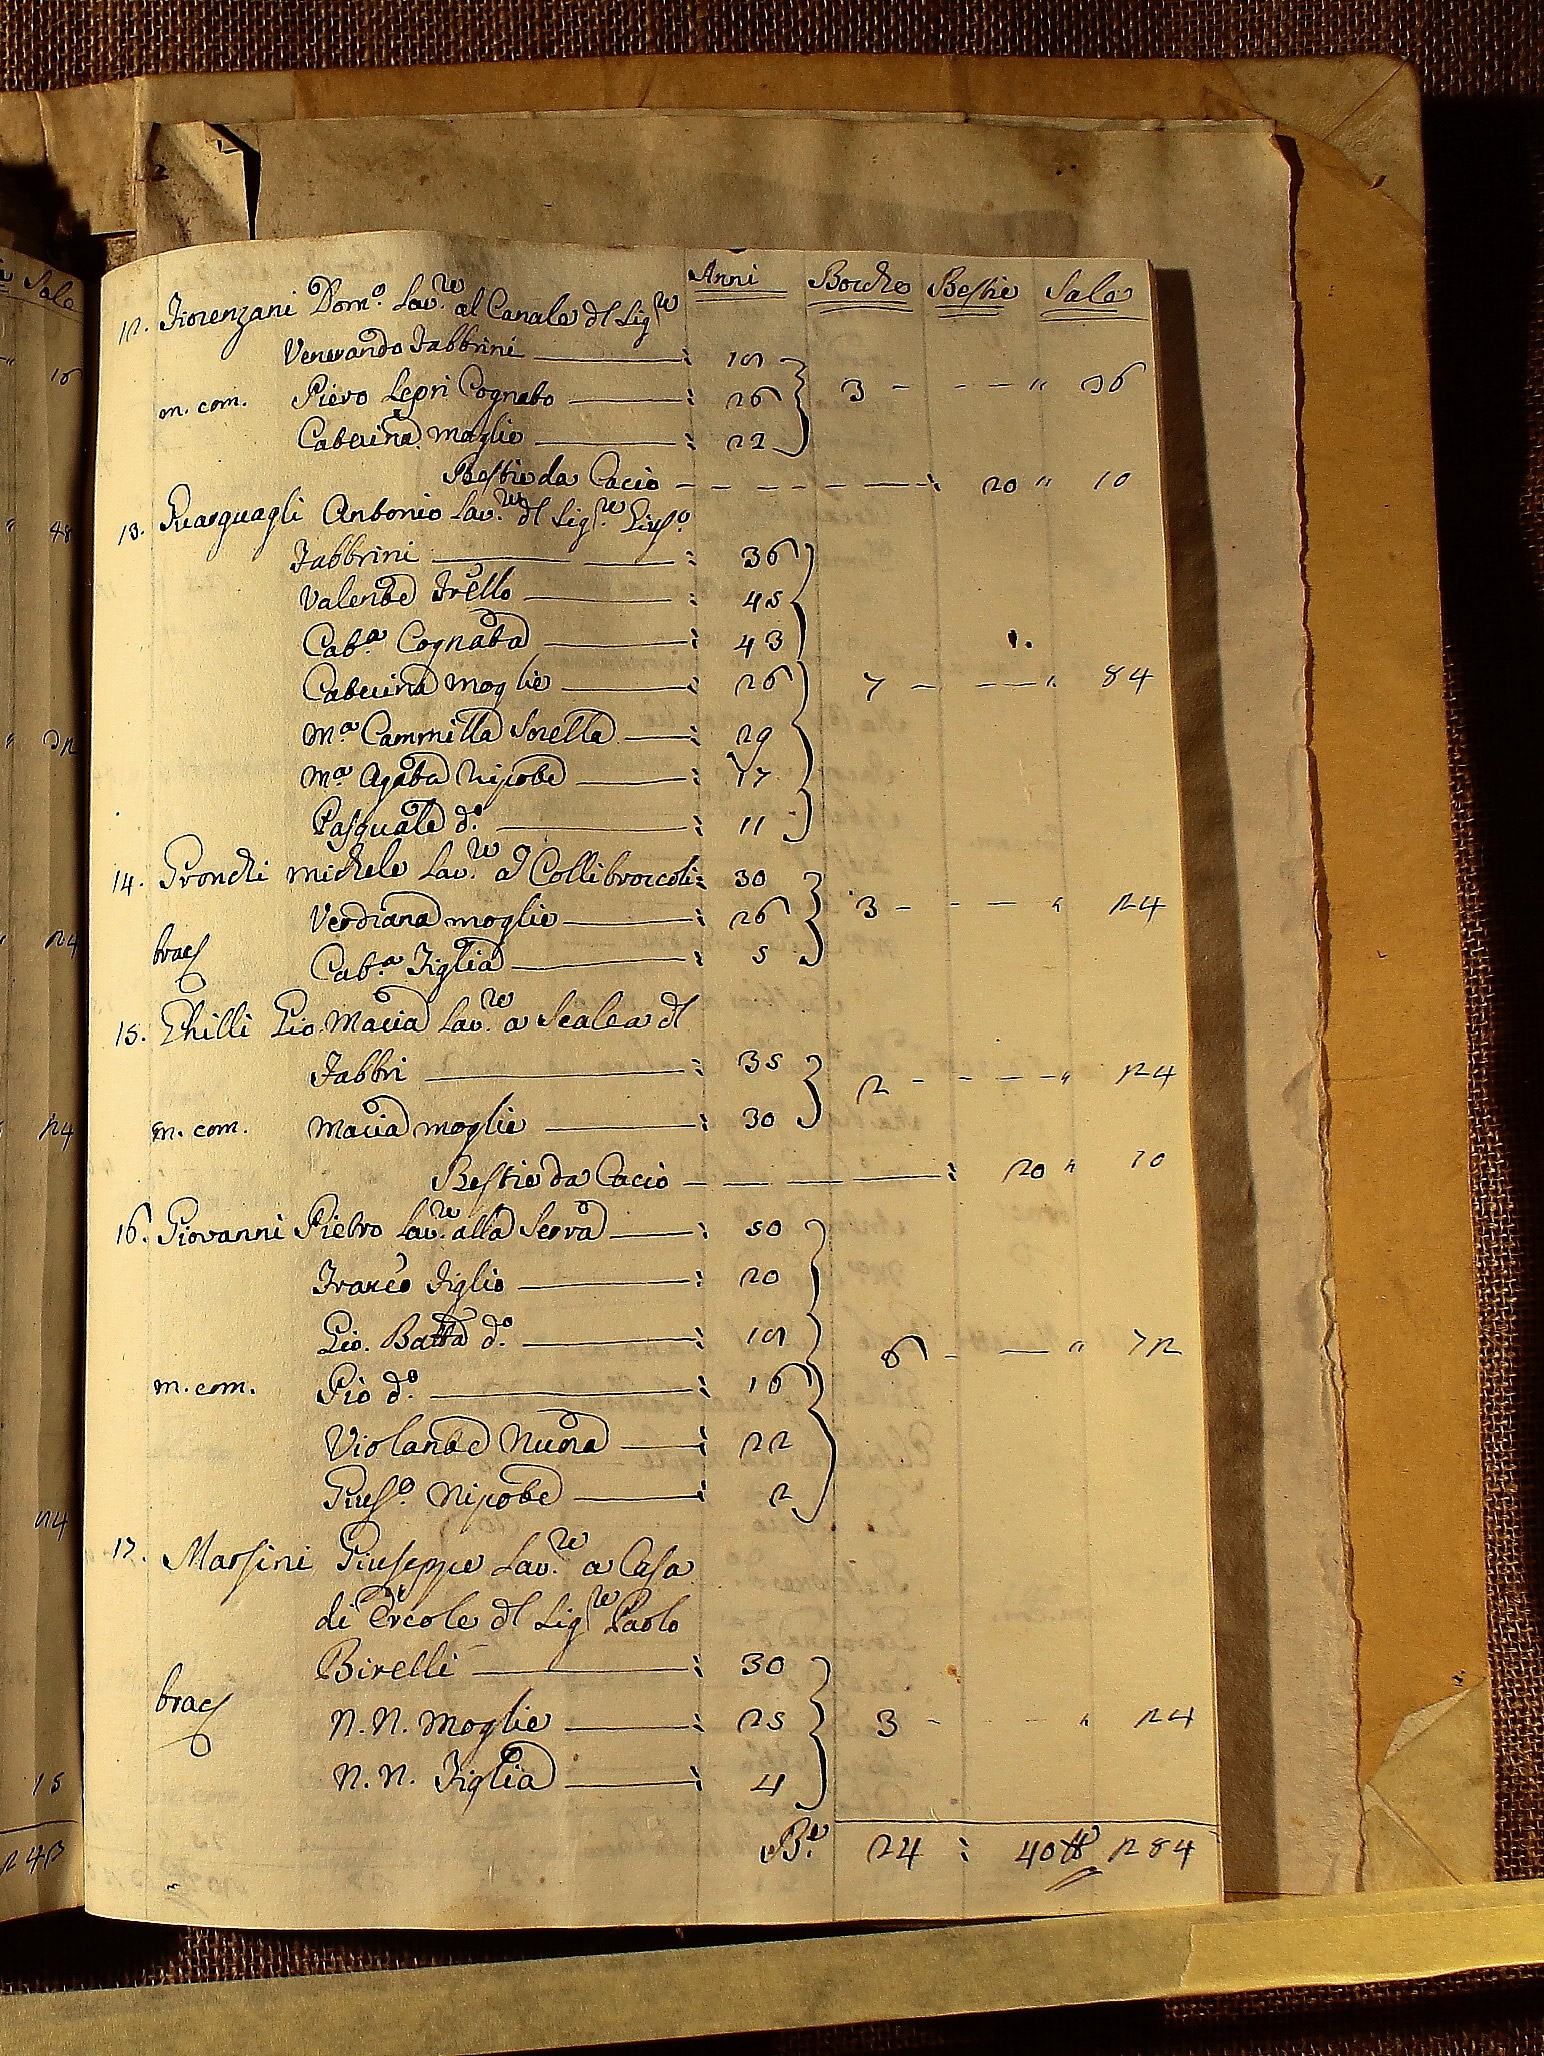 Anni Bocche Bestie Sale
12. Fiorenzani Dom.º Lav.re al Canale dl Sig.re
Venerando Fabbrini : 19
m. com. Piero Lepri Cognato : 26 3 - - - " 36
Caterina moglie : 22
Bestie da Cacio - - - - - : 20 " 10
13. Guasguagli Antonio Lav.re dl Sig.re Gius.º
Fabbrini : 36
Valente Frello : 45
Cat.a Cognata : 43
Caterina moglie : 26 7 - - - " 84
M.a Cammilla Sorella : 29
M.a Agata Nipote : 17
Pasquale d.º : 11
14. Gronchi Michele Lav.re a Collibroccoli : 30
Verdiana moglie : 26 3 - - - " 24
brac
Cat.a Figlia : 5
15. Ghilli Gio. Maria Lav.re a Scalea dl
Fabbri : 35
2 - - - " 24
m. com. Maria moglie : 30
Bestie da Cacio - - - - : 20 " 10
16. Giovanni Pietro Lav.re alla Serra : 50
Franco Figlio : 20
Gio. Batta d.º : 19
6 - - " 72
m. com. Pio d.º : 16
Violante Nuora : 22
Gius.e Nipote : 2
17. Marsini Giuseppe Lav.re a Casa
di Ercole dl Sig.re Paolo
Birelli : 30
brac
N. N. Moglie : 25 3 - - - " 24
N. N. Figlia : 4
B.e 24 : 40 ℔ 284
Sale
16
48
24
24
24
15